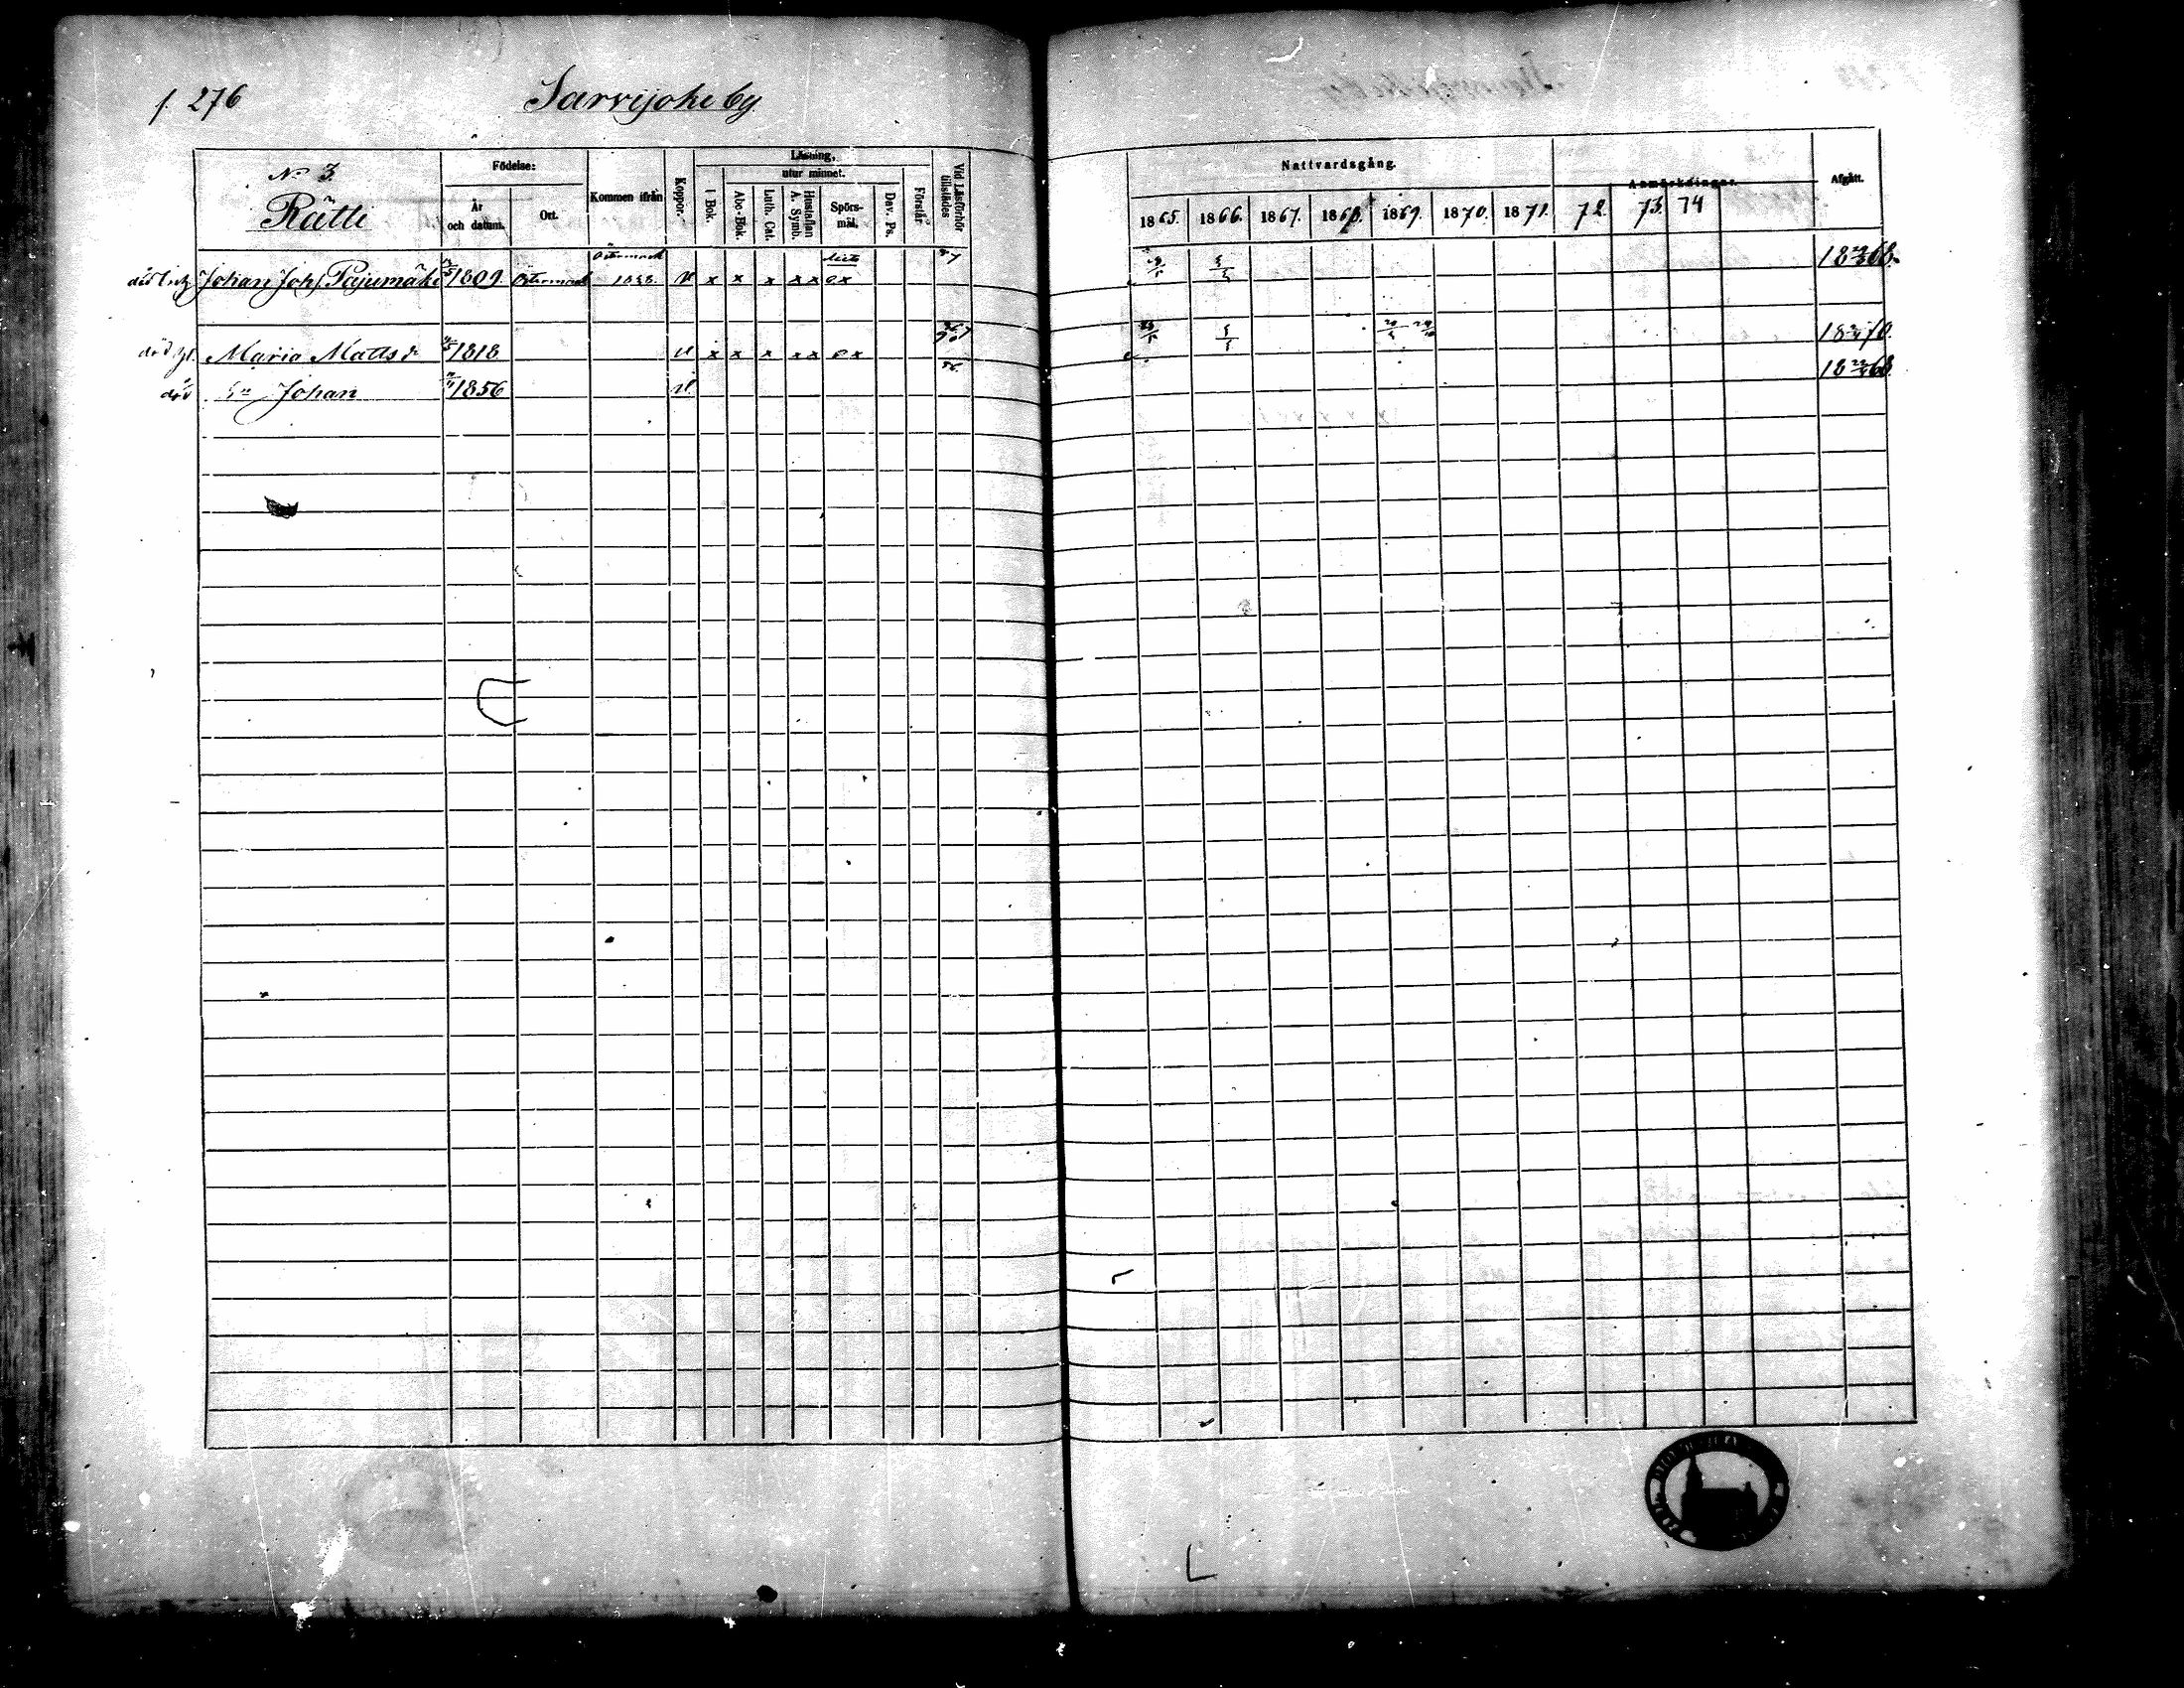 p. 276 Sarvijoki by.
No 3.
Rätti
Födelse:
År och datum.
Ort.
Kommen ifrån
Koppor.
Läsning,
utur minnet.
I Bok.
Abc-Bok.
Luth. Cat.
Hustaflan A. Symb.
Spörsmål.
Dav. Ps.
Förstår
Vid Läsförhör tillstädes
Nattvardsgång.
1865. 1866. 1867. 1868. 1869. 1870. 1871. 72. 73. 74
Anmärkningar.
Afgått.
Östermark
död Johan Joh Pajumäki 1809. Östermark 1838. v x x x x x x 18 68.
död Maria Matts d. 1818 v x x x x x x 18 70.
död Sn Johan 1856 v. 18 68.